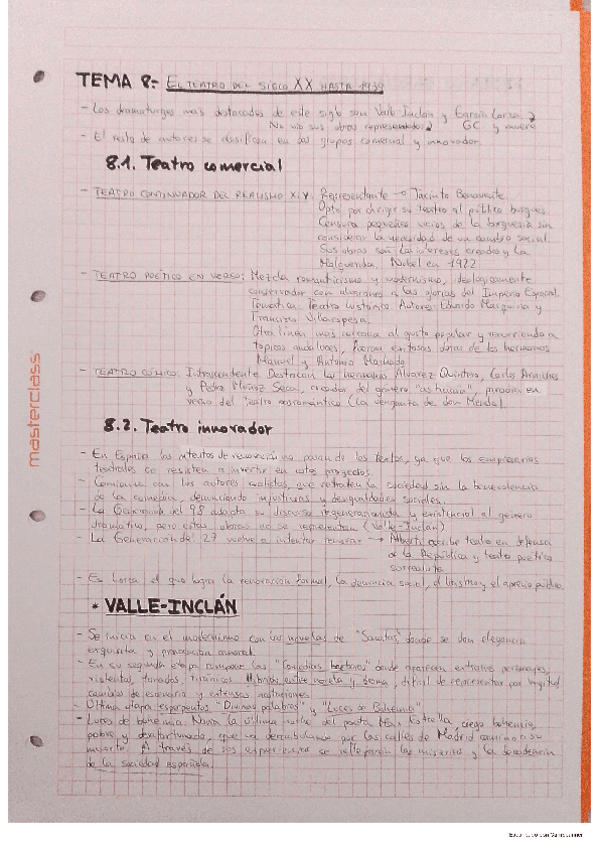 TEMA 8:- EL TEATRO DEL SIGLO XX HASTA 1939
- Los dramaturgos más destacados de este siglo son Valle Inclán y García Lorca
No vio sus obras representadas GC y muere
- El resto de autores se clasifican en dos grupos comercial y innovador.
8.1. Teatro comercial
- TEATRO CONTINUADOR DEL REALISMO XIX: Representante → Jacinto Benavente.
Opta por dirigir su teatro al público burgues.
Censura pequeños vicios de la burguesía sin
considerar la necesidad de un cambio social.
Sus obras son Los intereses creados y La
Malquerida. Nobel en 1922
- TEATRO POÉTICO EN VERSO: Mezcla romanticismo y modernismo, ideologicamente
conservador con alusiones a las glorias del Imperio Español.
Tematica Teatro historico. Autores: Eduardo Marquina y
Francisco Villaespesa.
Otra linea mas cercana al gusto popular y recurriendo a
topicos andaluces, fueron exitosas obras de los hermanos
Manuel y Antonio Machado.
- TEATRO CÓMICO: Intrascendente. Destacan los hermanos Álvarez Quintero, Carlos Arniches
y Pedro Muñoz Seca, creador del género "astracán", parodia en
verso del teatro neoromántico (La venganza de don Mendo)
8.2. Teatro innovador
- En España los intentos de renovación no pasan de los textos, ya que los empresarios
teatrales se resisten a invertir en estos proyectos.
- Comienza con los autores realistas, que retratan la sociedad sin la benevolencia
de la comedia, denunciando injusticias y desigualdades sociales.
- La Generación del 98 adapta su discurso regeneracionista y existencial al género
dramático, pero estas obras no se representan (Valle-Inclán)
- La Generación del 27 vuelve a intentar renovar → Alberti escribe teatro en defensa
de la República y teatro poético
surrealista
- Es Lorca el que logra la renovación formal, la denuncia social, el lirismo y el aprecio público.
* VALLE-INCLÁN
- Se inicia en el modernismo con las novelas de "Sonatas", donde se dan elegancia
exquisita y provocación amoral.
- En su segunda etapa rompe las "Comedias bárbaras" donde aparecen extraños personajes,
violentos, tarados, tiránicos. Híbridos entre novela y drama, difícil de representar por longitud
cambios de escenario y extensas acotaciones.
- Última etapa: esperpentos "Divinas palabras" y "Luces de Bohemia"
- Luces de bohemia. Narra la última noche del poeta Max Estrella, ciego bohemio,
pobre y desafortunado, que va deambulando por las calles de Madrid camino a su
muerte. A través de sus experiencias se reflejarán las miserias y la decadencia
de la sociedad española.
masterclass